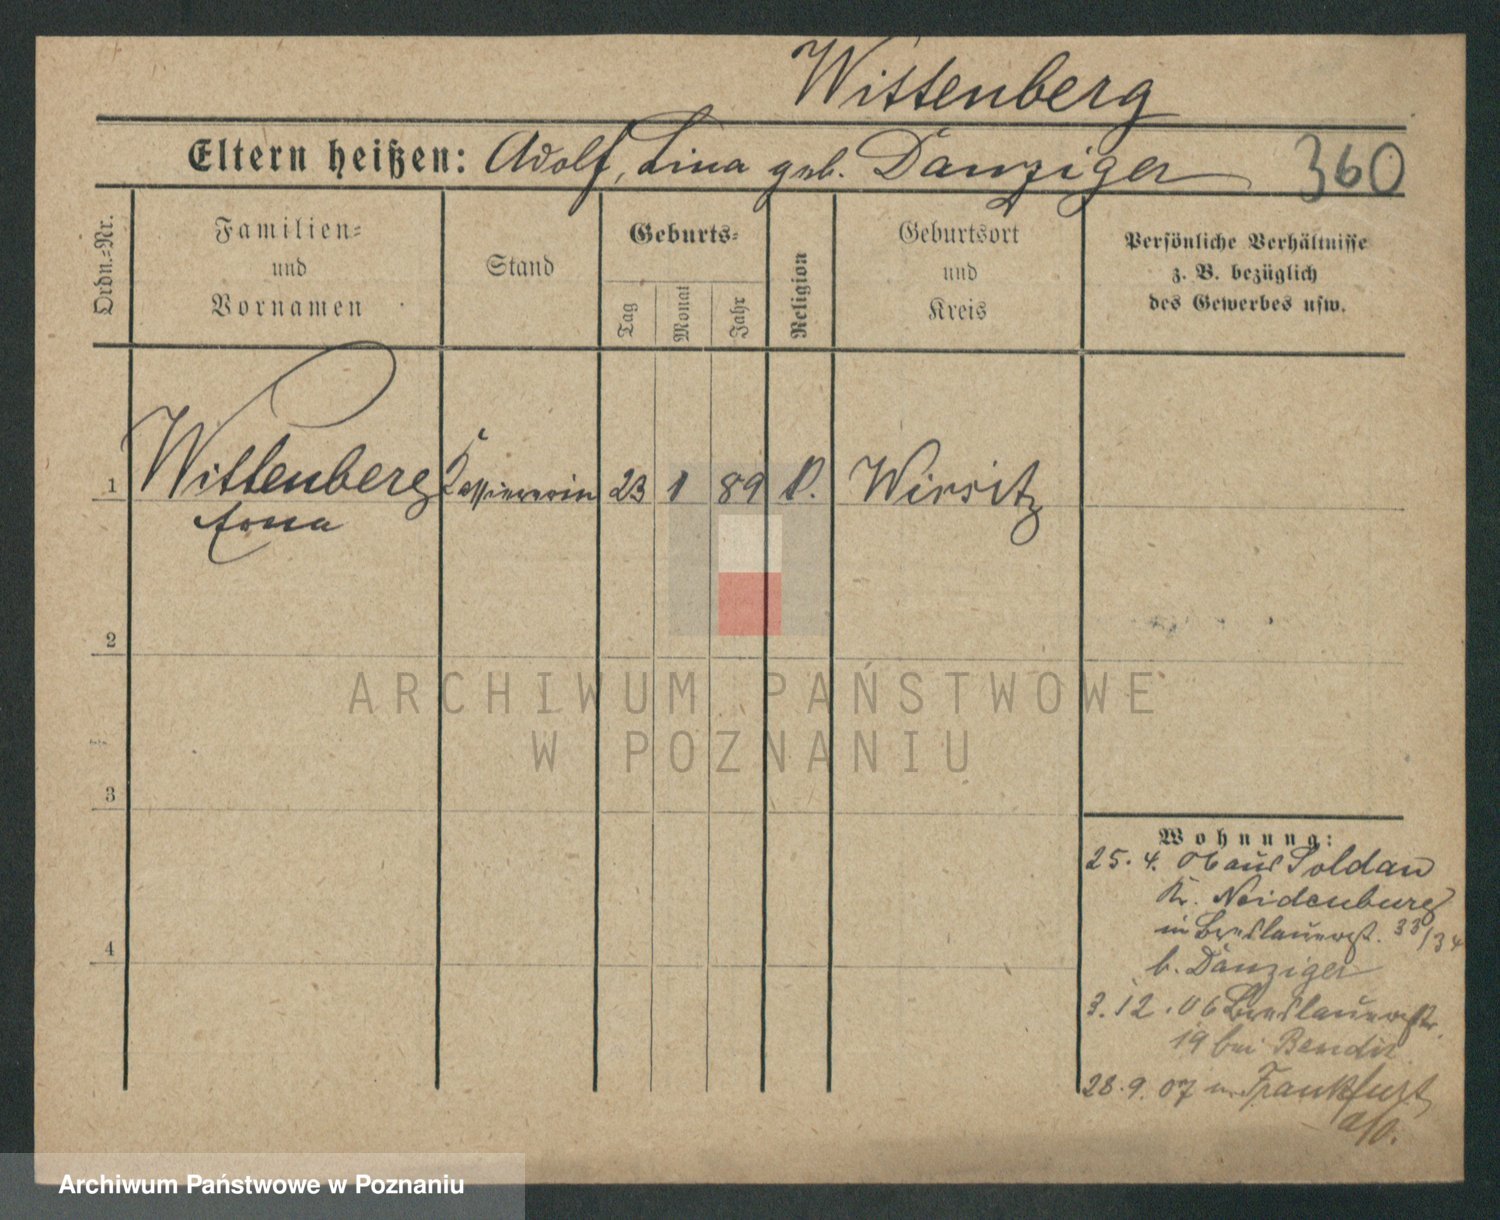 Wittenberg
Eltern heißen: Adolf, Lina geb. Danziger 360
Ordn.=Nr.
Familien=
und
Vornamen
Stand
Geburts=
Tag
Monat
Jahr
Religion
Geburtsort
und
Kreis
Persönliche Verhältnisse
z. B. bezüglich
des Gewerbes usw.
1 Wittenberg Kassiererin 23 1 89 Wirsitz
Erna
2
3
4
Wohnung:
25. 4. 06 aus Soldau
Kr. Neidenburg
in Breslauerst. 33/34
b. Danziger
3. 12. 06 Breslauerstr.
19 bei Bendix
28. 9. 07 n. Frankfurt
a/O.
ARCHIWUM PAŃSTWOWE
W POZNANIU
Archiwum Państwowe w Poznaniu